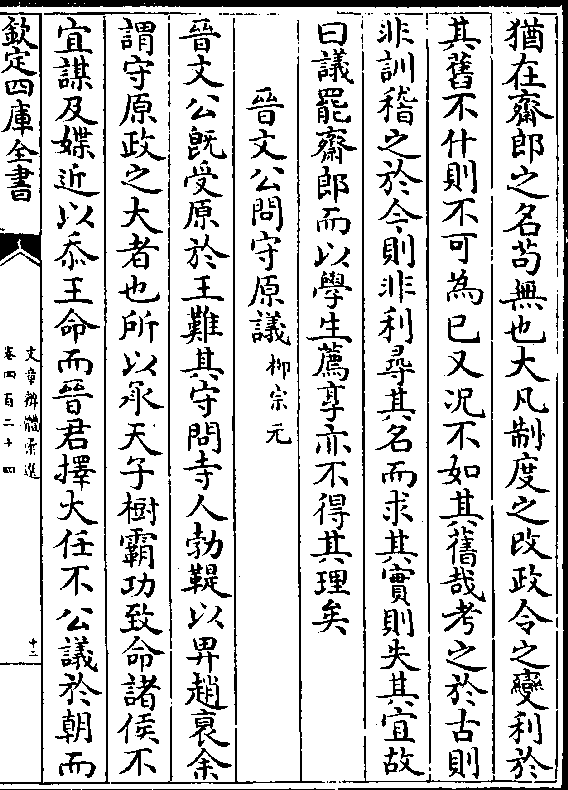 猶在齋郎之名苟無也大凡制度之改政令之變利於
其舊不什則不可為已又况不如其舊哉考之於古則
非訓稽之於今則非利尋其名而求其實則失其宜故
曰議罷齋郎而以學生薦享亦不得其理矣
晉文公問守原議 柳宗元
晉文公既受原於王難其守問寺人勃鞮以畀趙衰余
謂守原政之大者也所以承天子樹霸功致命諸侯不
宜謀及媟近以忝王命而晉君擇大任不公議於朝而
欽定四庫全書
文章辨體彙選
卷四百二十四
十二